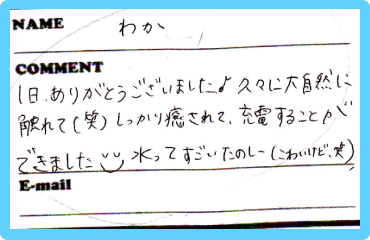 NAME わか
COMMENT
1日、ありがとうございました♪ 久々に大自然に
触れて(笑)しっかり癒されて、充電することが
できました 水ってすごいたのしー(こわいけど、笑)
E-mail